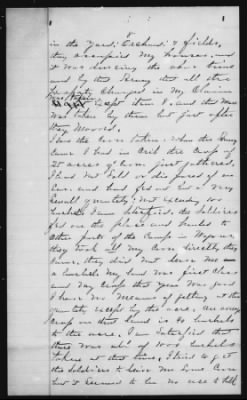 in the yard, Orchard, & fields,
they occupied My houses, and
it was during the above time
and by this Army that all the
property charged in My Claim
was taken except Item 1, and that was
was taken by them but just after
they Moved.
I saw the Corn taken. When the Army
came I had in Crib the Crop of
25 acres of Corn just gathered.
I had Not Sold or disposed of an
Ear. and had fed out but a very
Small quantity; Not exceeding 100
bushels I am satisfied. the Soldiers
fed on the place and hauled to
other parts of the Camp in Wagons.
they took all My Corn directly they
came, they did not leave Me
a bushel. My land was first Class
and My Crop that Year was good
I have No Means of getting at the
quantity except by the acre. An average
Crop on that land is 40 bushels
to the acre. I am Satisfied that
there was at of 1000 bushels
taken at that time. I tried to get
the Soldiers to leave Me Some Corn
but it seemed to be no use to talk